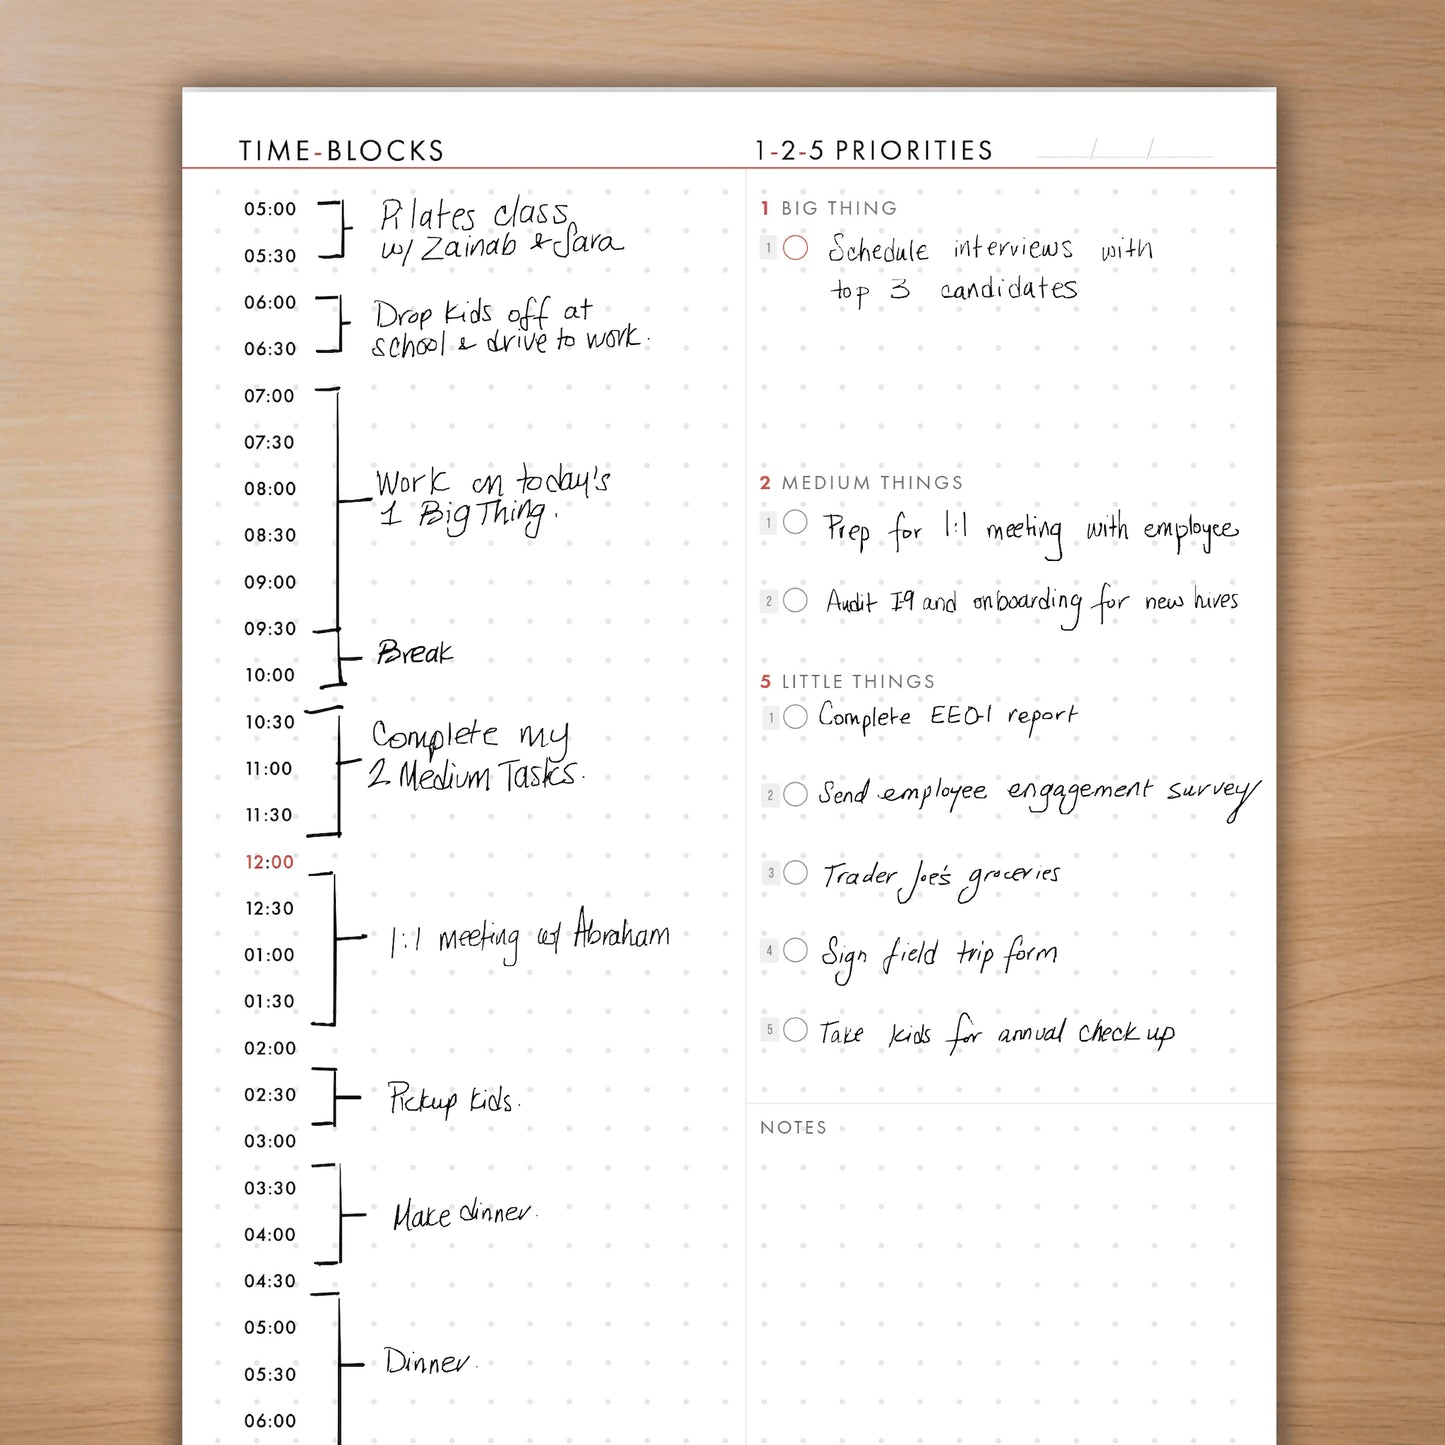 TIME-BLOCKS
05:00
Pilates class
w/ Zainab & Sara
05:30
06:00
Drop kids off at
school & drive to work.
06:30
07:00
07:30
08:00
Work on today's
1 Big Thing.
08:30
09:00
09:30
Break
10:00
10:30
Complete my
2 Medium Tasks.
11:00
11:30
12:00
12:30
1:1 meeting w/ Abraham
01:00
01:30
02:00
02:30
Pickup kids.
03:00
03:30
Make dinner.
04:00
04:30
05:00
Dinner.
05:30
06:00
1-2-5 PRIORITIES / /
1 BIG THING
1 Schedule interviews with
top 3 candidates
2 MEDIUM THINGS
1 Prep for 1:1 meeting with employee
2 Audit I9 and onboarding for new hires
5 LITTLE THINGS
1 Complete EEO-1 report
2 Send employee engagement survey
3 Trader Joe's groceries
4 Sign field trip form
5 Take kids for annual check up
NOTES